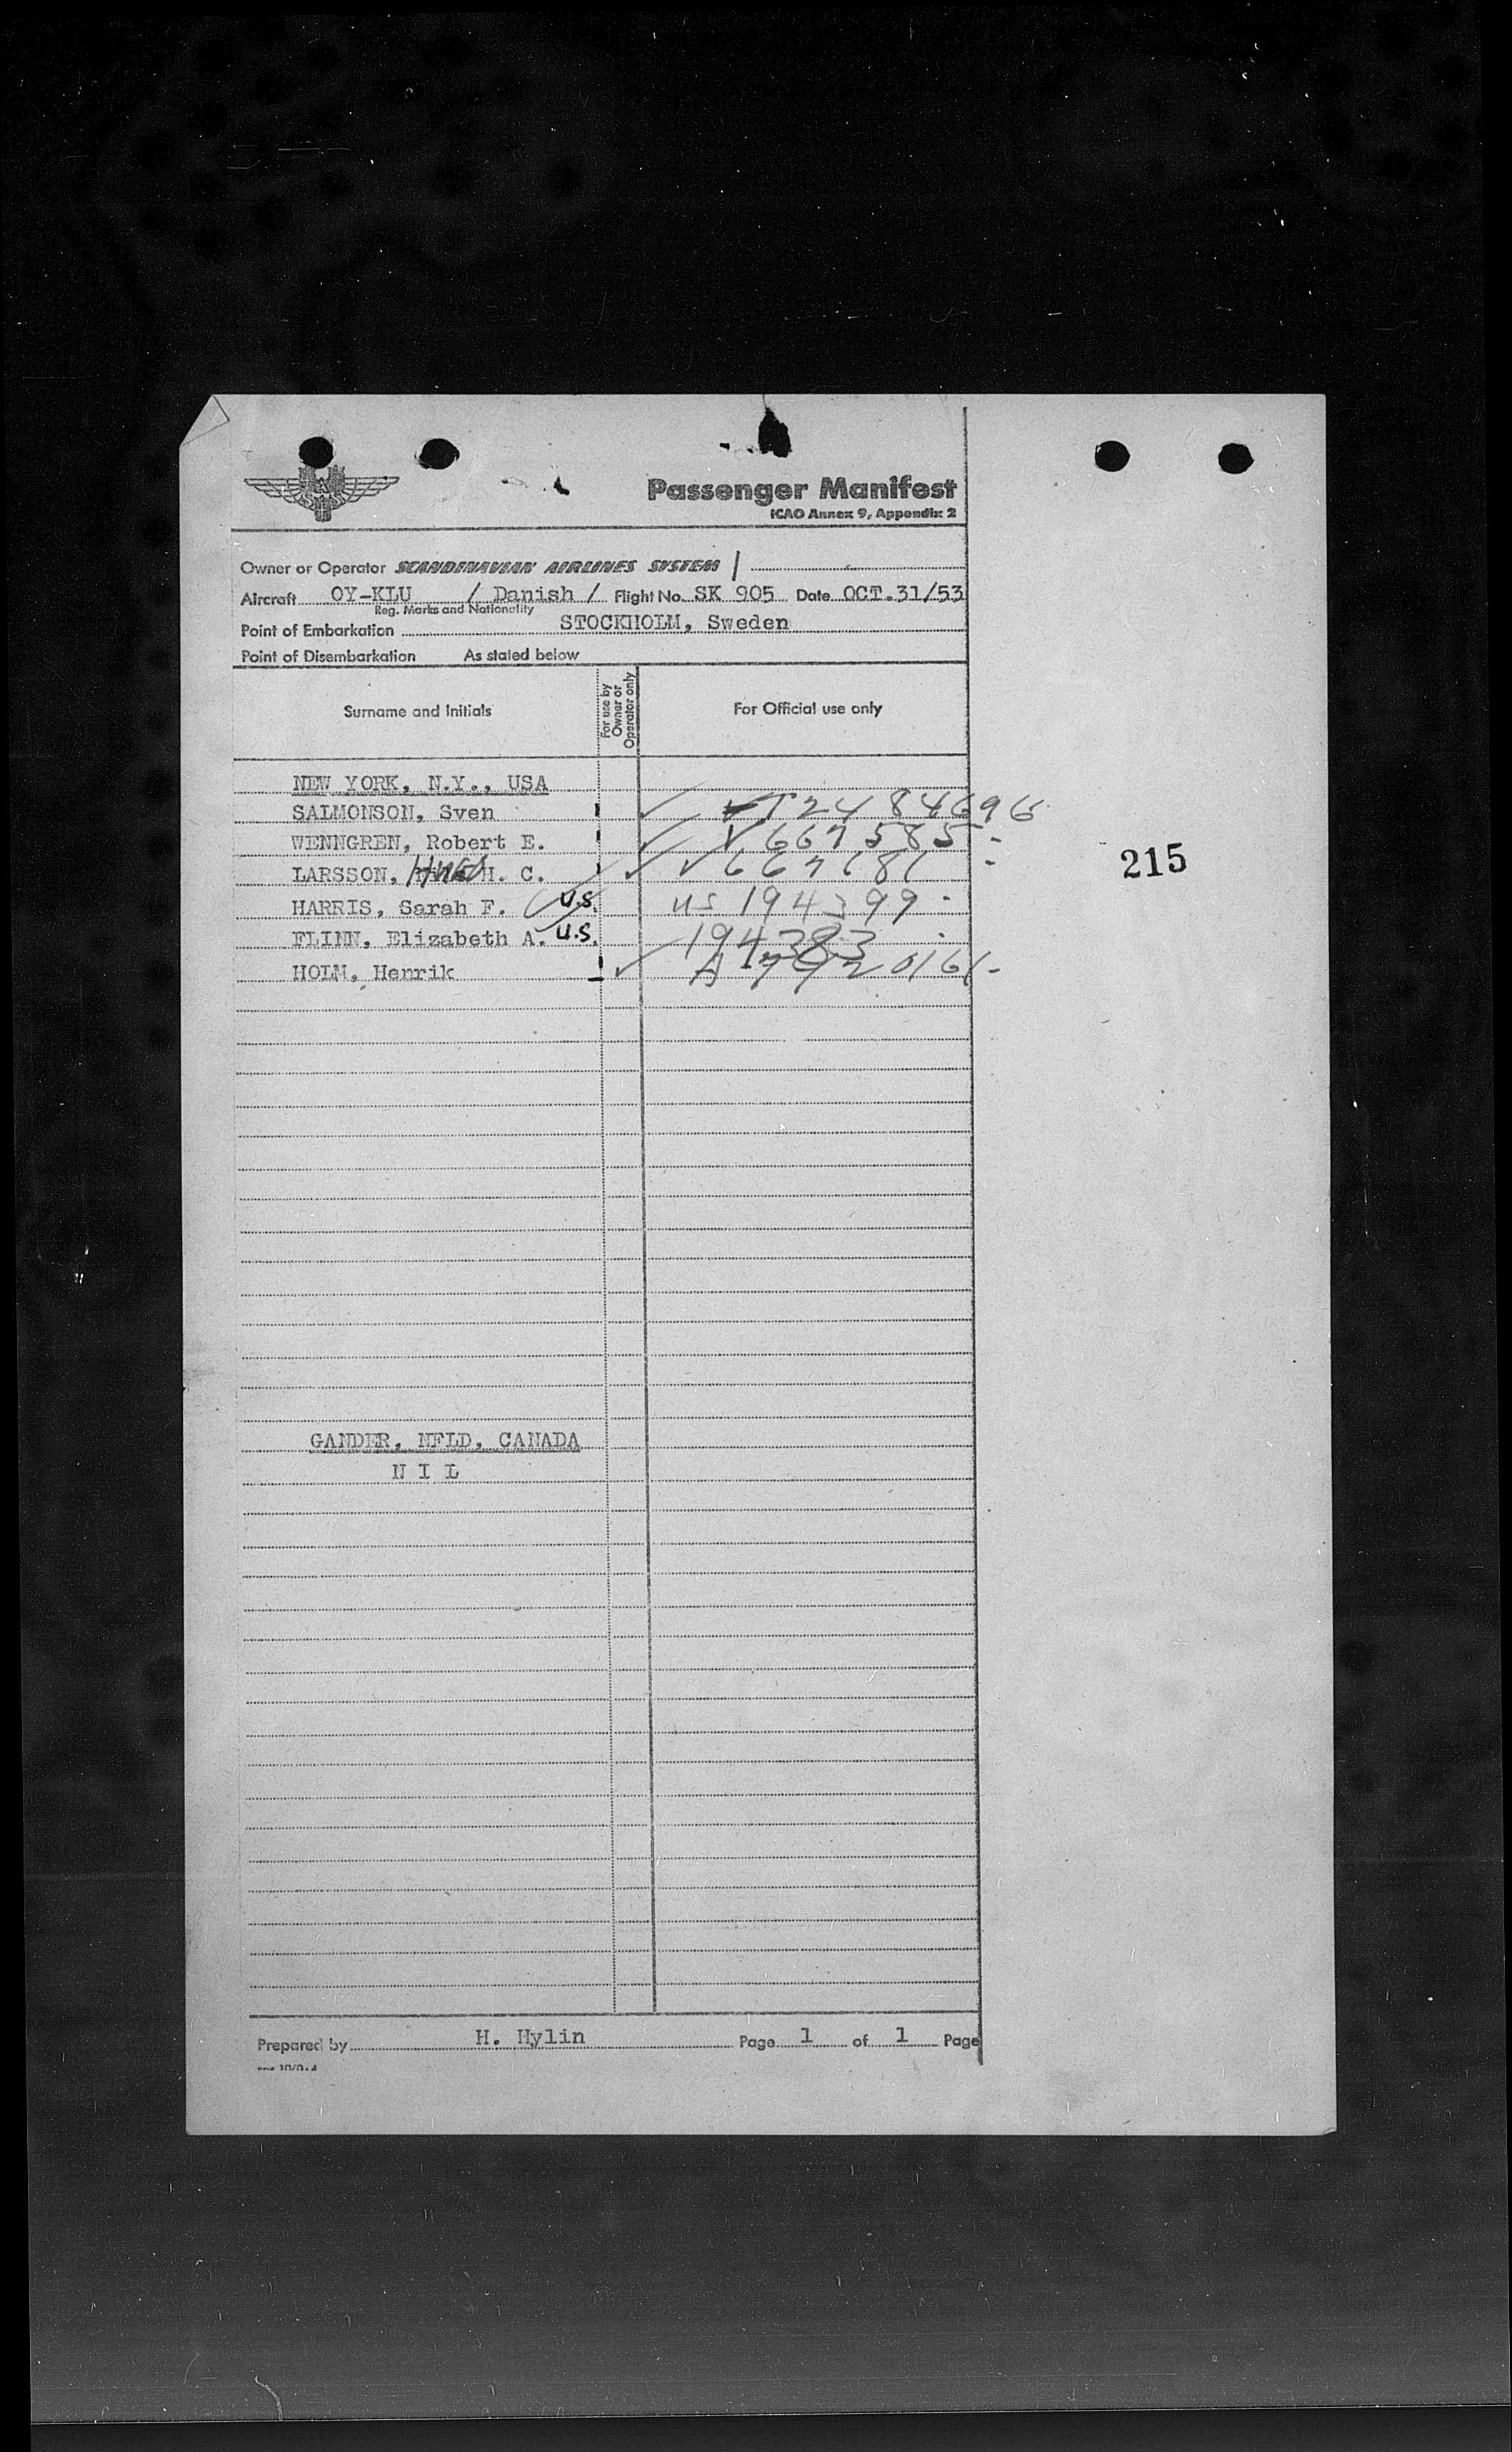 SAS
Passenger Manifest
ICAO Annex 9, Appendix 2
Owner or Operator SCANDINAVIAN AIRLINES SYSTEM
Aircraft OY-KLU / Danish / Flight No. SK 905 Date OCT.31/53
Reg. Marks and Nationality
Point of Embarkation STOCKHOLM, Sweden
Point of Disembarkation As stated below
Surname and Initials For use by Owner or Operator only For Official use only
NEW YORK, N.Y., USA
SALMONSON, Sven ✓
WENNGREN, Robert E. ✓ V 667585 -
LARSSON, H. C. ✓ V 667181 -
HARRIS, Sarah F. U.S. US 194399 -
FLINN, Elizabeth A. U.S. 194383
HOLM, Henrik ✓
215
GANDER, NFLD, CANADA
N I L
Prepared by H. Hylin Page 1 of 1 Page